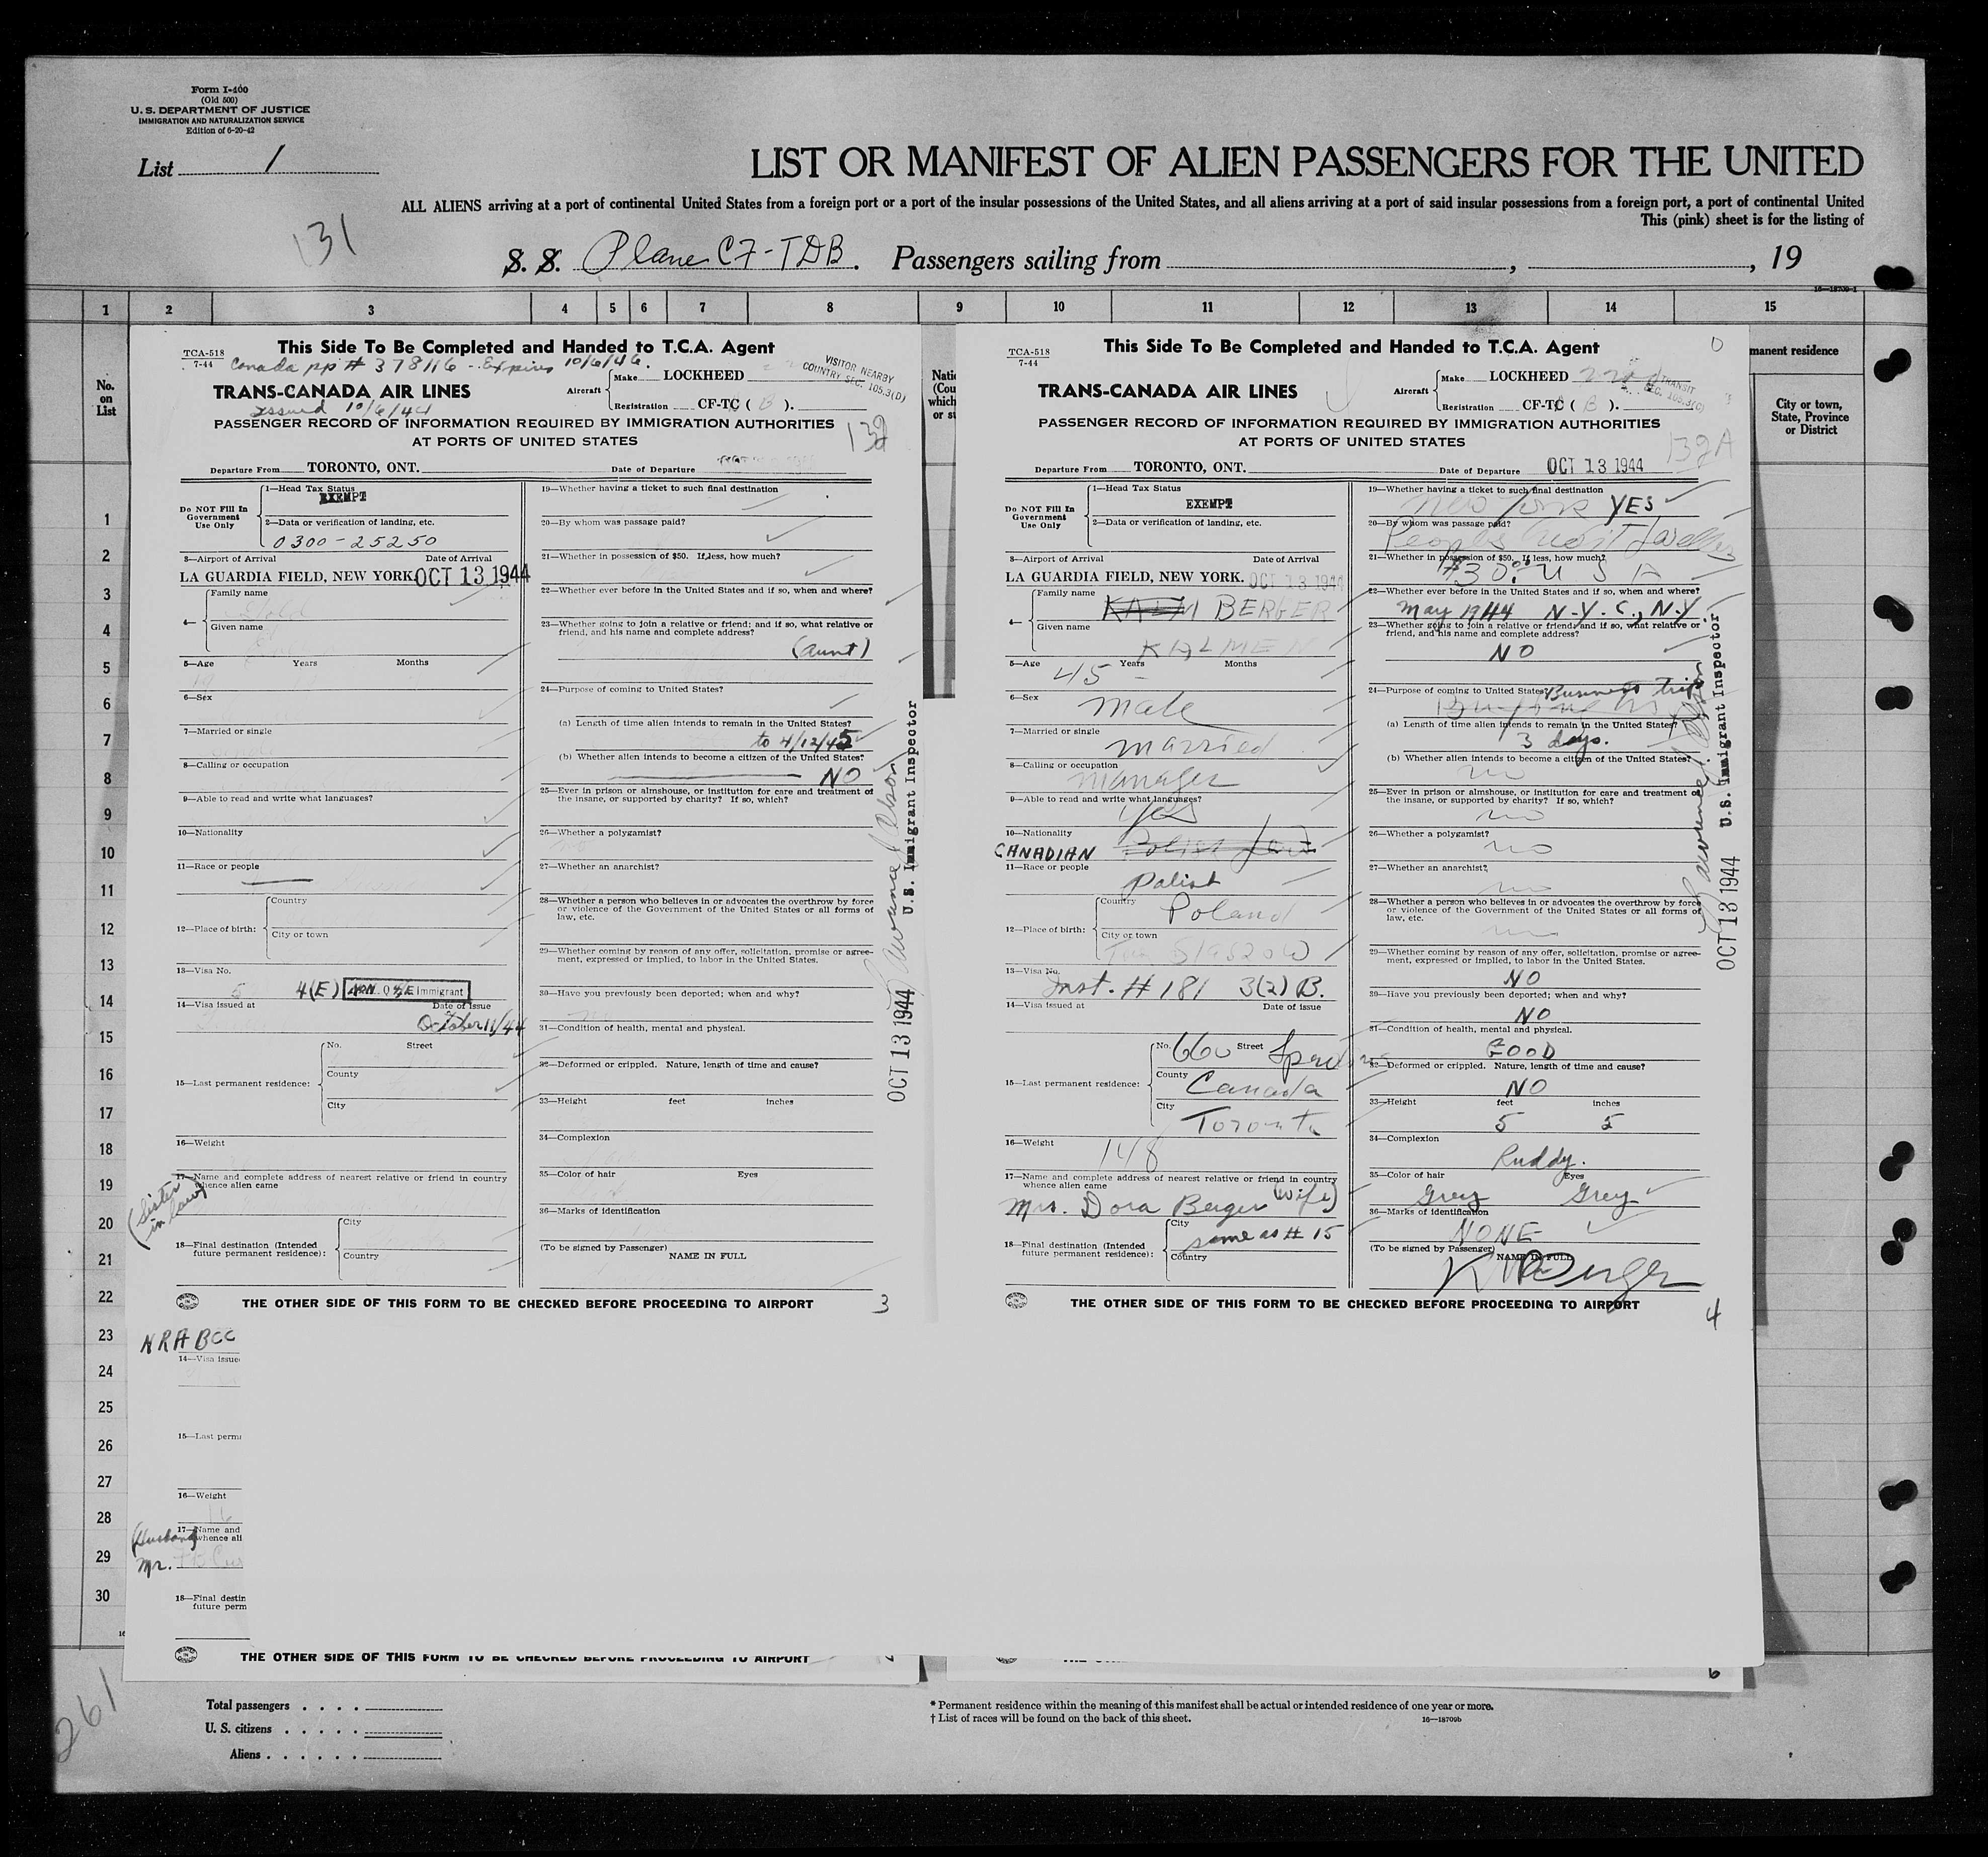 Form I-400
(Old 500)
U. S. DEPARTMENT OF JUSTICE
IMMIGRATION AND NATURALIZATION SERVICE
Edition of 6-20-42
List 1
131
LIST OR MANIFEST OF ALIEN PASSENGERS FOR THE UNITED
ALL ALIENS arriving at a port of continental United States from a foreign port or a port of the insular possessions of the United States, and all aliens arriving at a port of said insular possessions from a foreign port, a port of continental United
This (pink) sheet is for the listing of
S. S. Plane CF-TDB. Passengers sailing from , , 19
1 2 3 4 5 6 7 8 9 10 11 12 13 14 15
No. on List
manent residence
City or town, State, Province or District
1
2
3
4
5
6
7
8
9
10
11
12
13
14
15
16
17
18
19
20
21
22
23
24
25
26
27
28
29
30
This Side To Be Completed and Handed to T.C.A. Agent
TCA-518
7-44
Canada pp # 378116 - Expires 10/6/46.
VISITOR NEARBY
COUNTRY SEC. 105.3(D)
TRANS-CANADA AIR LINES
issued 10/6/44
Aircraft
Make LOCKHEED
Registration CF-TC ( B ).
PASSENGER RECORD OF INFORMATION REQUIRED BY IMMIGRATION AUTHORITIES
AT PORTS OF UNITED STATES
Departure From TORONTO, ONT. Date of Departure
Do NOT Fill In Government Use Only
1—Head Tax Status
EXEMPT
2—Data or verification of landing, etc.
0300-25250
3—Airport of Arrival Date of Arrival
LA GUARDIA FIELD, NEW YORK. OCT 13 1944
4— Family name
Given name
5—Age Years Months
6—Sex
7—Married or single
8—Calling or occupation
9—Able to read and write what languages?
10—Nationality
11—Race or people
12—Place of birth: Country
City or town
13—Visa No.
4(E) NON Immigrant
14—Visa issued at Date of Issue
October 11/44
15—Last permanent residence: No. Street
County
City
16—Weight
17—Name and complete address of nearest relative or friend in country whence alien came
(Sister in law)
18—Final destination (Intended future permanent residence): City
Country
19—Whether having a ticket to such final destination
20—By whom was passage paid?
21—Whether in possession of $50. If less, how much?
22—Whether ever before in the United States and if so, when and where?
23—Whether going to join a relative or friend; and if so, what relative or friend, and his name and complete address?
(aunt)
24—Purpose of coming to United States?
(a) Length of time alien intends to remain in the United States?
to 4/12/45
(b) Whether alien intends to become a citizen of the United States?
NO
25—Ever in prison or almshouse, or institution for care and treatment of the insane, or supported by charity? If so, which?
26—Whether a polygamist?
27—Whether an anarchist?
28—Whether a person who believes in or advocates the overthrow by force or violence of the Government of the United States or all forms of law, etc.
29—Whether coming by reason of any offer, solicitation, promise or agreement, expressed or implied, to labor in the United States.
30—Have you previously been deported; when and why?
31—Condition of health, mental and physical.
32—Deformed or crippled. Nature, length of time and cause?
33—Height feet inches
34—Complexion
35—Color of hair Eyes
36—Marks of identification
(To be signed by Passenger) NAME IN FULL
OCT 13 1944 U.S. Immigrant Inspector
THE OTHER SIDE OF THIS FORM TO BE CHECKED BEFORE PROCEEDING TO AIRPORT
3
This Side To Be Completed and Handed to T.C.A. Agent
TCA-518
7-44
TRANS-CANADA AIR LINES
Aircraft
Make LOCKHEED
Registration CF-TC ( B ).
TRANSIT
SEC. 105.3(C)
PASSENGER RECORD OF INFORMATION REQUIRED BY IMMIGRATION AUTHORITIES
AT PORTS OF UNITED STATES
Departure From TORONTO, ONT. Date of Departure OCT 13 1944
Do NOT Fill In Government Use Only
1—Head Tax Status
EXEMPT
2—Data or verification of landing, etc.
3—Airport of Arrival Date of Arrival
LA GUARDIA FIELD, NEW YORK. OCT 13 1944
4— Family name
KALM BERGER
Given name
KALMEN
5—Age Years Months
45 -
6—Sex
male
7—Married or single
married
8—Calling or occupation
manager
9—Able to read and write what languages?
yes
10—Nationality
CANADIAN
11—Race or people
Polish
12—Place of birth: Country
Poland
City or town
13—Visa No.
Inst. # 181 3(2) B.
14—Visa issued at Date of issue
15—Last permanent residence: No. 660 Street
County
Canada
City
Toronto
16—Weight
148
17—Name and complete address of nearest relative or friend in country whence alien came
Mrs. Dora Berger (wife)
18—Final destination (Intended future permanent residence): City
same as # 15
Country
19—Whether having a ticket to such final destination
New York YES
20—By whom was passage paid?
Peoples Credit Jewellers
21—Whether in possession of $50. If less, how much?
$30.00 U S A
22—Whether ever before in the United States and if so, when and where?
May 1944 N.Y.C., N.Y.
23—Whether going to join a relative or friend; and if so, what relative or friend, and his name and complete address?
NO
24—Purpose of coming to United States? Business trip
(a) Length of time alien intends to remain in the United States?
3 days.
(b) Whether alien intends to become a citizen of the United States?
no
25—Ever in prison or almshouse, or institution for care and treatment of the insane, or supported by charity? If so, which?
no
26—Whether a polygamist?
no
27—Whether an anarchist?
no
28—Whether a person who believes in or advocates the overthrow by force or violence of the Government of the United States or all forms of law, etc.
no
29—Whether coming by reason of any offer, solicitation, promise or agreement, expressed or implied, to labor in the United States.
NO
30—Have you previously been deported; when and why?
NO
31—Condition of health, mental and physical.
GOOD
32—Deformed or crippled. Nature, length of time and cause?
NO
33—Height feet inches
5 5
34—Complexion
Ruddy.
35—Color of hair Eyes
Grey Grey
36—Marks of identification
NONE
(To be signed by Passenger) NAME IN FULL
K Berger
OCT 13 1944 U.S. Immigrant Inspector
THE OTHER SIDE OF THIS FORM TO BE CHECKED BEFORE PROCEEDING TO AIRPORT
4
NRA BCC
14—Visa issue
15—Last perm
16—Weight
17—Name and
whence ali
(Husband)
Mr.
18—Final destin
future perm
THE OTHER SIDE OF THIS FORM TO BE CHECKED BEFORE PROCEEDING TO AIRPORT
6
261
Total passengers
U. S. citizens
Aliens
* Permanent residence within the meaning of this manifest shall be actual or intended residence of one year or more.
† List of races will be found on the back of this sheet.
16—18709b